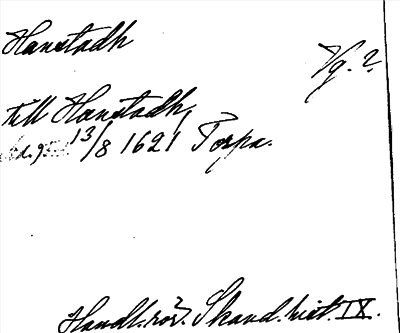 Hanstadh
Vg.?
till Hanstadh
13/8 1621 Torpa.
Handl. rör. Skand. hist. IX.